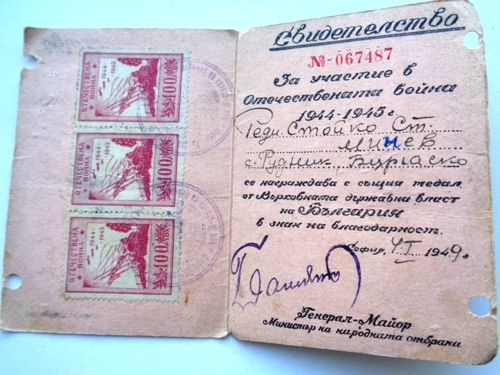 ОТЕЧЕСТВЕНА ВОЙНА
1944-1945
100
ОТЕЧЕСТВЕНА ВОЙНА
1944-1945
100
ОТЕЧЕСТВЕНА ВОЙНА
1944-1945
100
Свидетелство
№-067487
За участие в
Отечествената война
1944-1945 г
Редн. Стойко Ст.
Минев
с. Рудник, Бургаско
се награждава с същия медал
от Върховната държавна власт
на България
в знак на благодарност.
София, 1949 г.
Генерал-Майор
Министър на народната отбрана